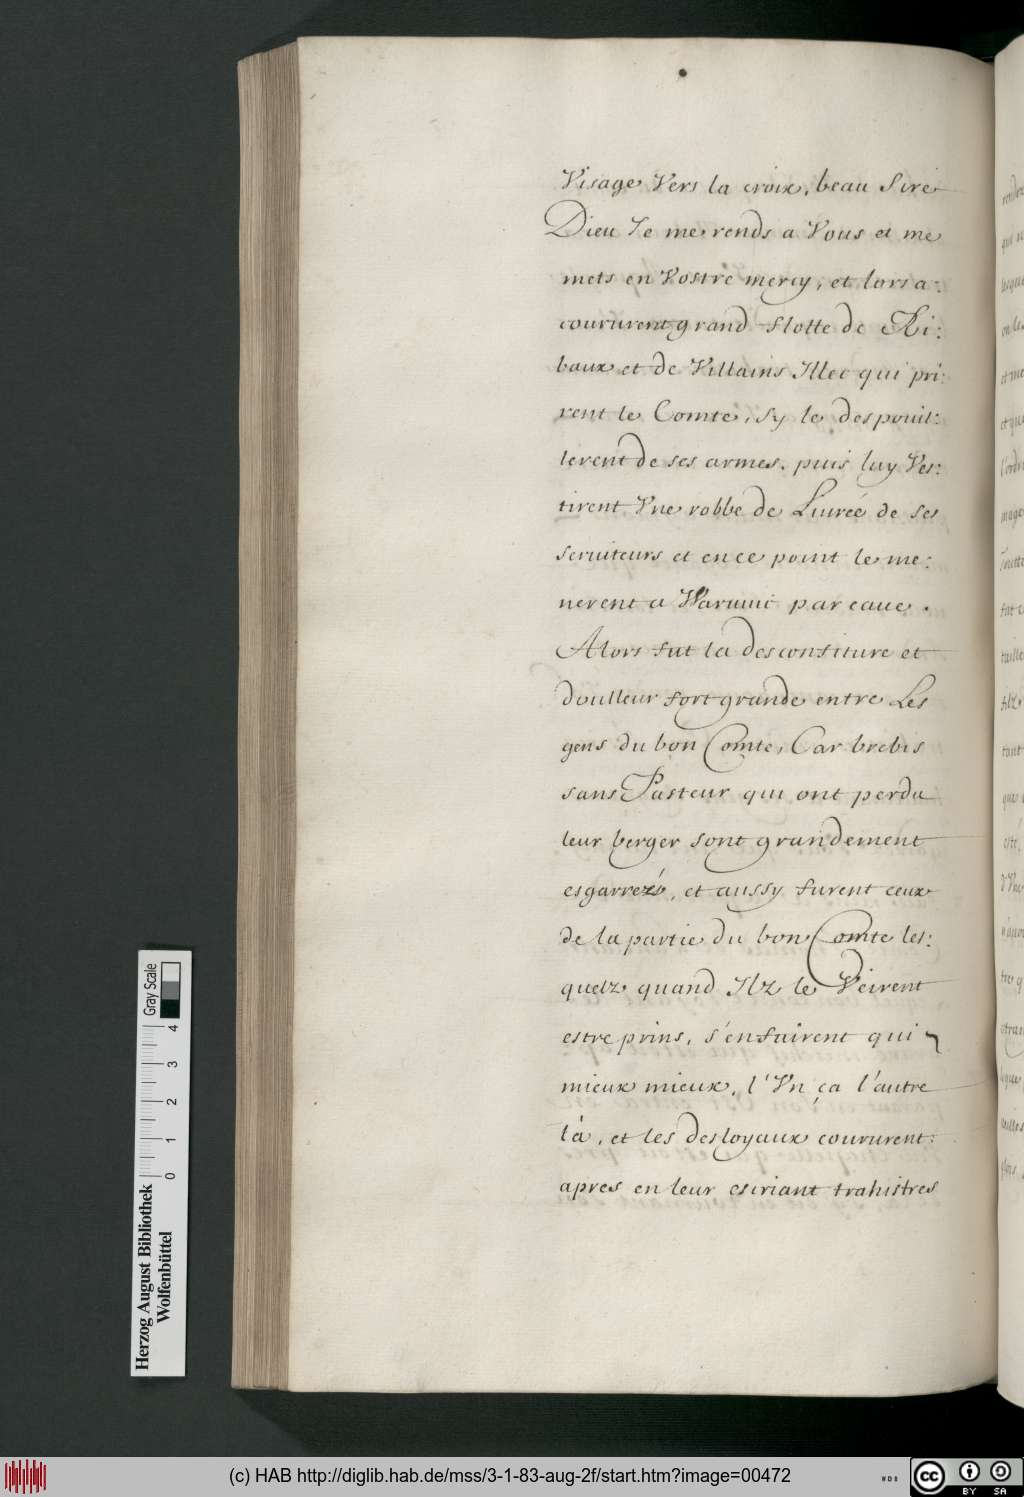 Visage Vers la croix, beau Sire
Dieu Je me rends a Vous et me
mets en Vostre mercy, et lors a:
coururent grand flotte de Ri:
baux et de Villains Illec qui pri:
rent le Comte, sy le despouil:
lerent de ses armes. puis luy Ves:
tirent Vne robbe de Liurée de ses
seruiteurs et en ce point le me:
nerent a Waruuic par eaue.
Alors fut la desconfiture et
doulleur fort grande entre Les
gens du bon Comte, Car brebis
sans Pasteur qui ont perdu
leur berger sont grandement
esgarrezs, et aussy furent ceux
de la partie du bon Comte les:
quelz quand Ilz le Veirent
estre prins, s'enfuirent qui
mieux mieux, l'Vn ça l'autre
là, et les desloyaux coururent:
apres en leur escriant trahistres
Herzog August Bibliothek
Wolfenbüttel
0 1 2 3 4
Gray Scale
(c) HAB http://diglib.hab.de/mss/3-1-83-aug-2f/start.htm?image=00472
WDB
cc BY SA